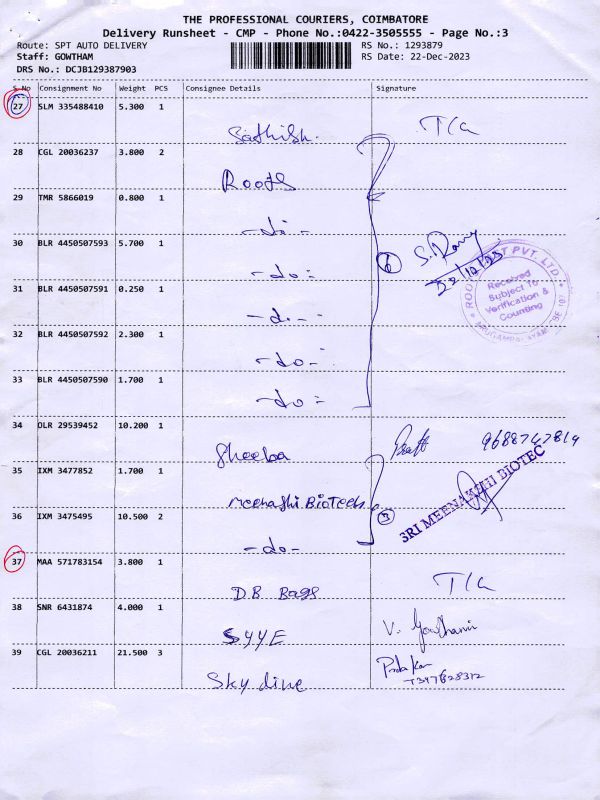 THE PROFESSIONAL COURIERS, COIMBATORE
Delivery Runsheet - CMP - Phone No.:0422-3505555 - Page No.:3
Route: SPT AUTO DELIVERY RS No.: 1293879
Staff: GOWTHAM RS Date: 22-Dec-2023
DRS No.: DCJB129387903
S.No Consignment No Weight PCS Consignee Details Signature
27 SLM 335488410 5.300 1
Sathish. T/C
28 CGL 20036237 3.800 2
Roots
29 TMR 5866019 0.800 1
-do-
30 BLR 4450507593 5.700 1
-do- 6 22/12/23
31 BLR 4450507591 0.250 1
-do-
Received
Subject To
Verification &
Counting
32 BLR 4450507592 2.300 1
-do-
33 BLR 4450507590 1.700 1
-do-
34 OLR 29539452 10.200 1
Sheeba
35 IXM 3477852 1.700 1
SRI MEENAKSHI BIOTEC
Meenashi.BioTech
36 IXM 3475495 10.500 2
-do- 3
37 MAA 571783154 3.800 1
DB Bags T/C
38 SNR 6431874 4.000 1
SYYE V. Gowthami
39 CGL 20036211 21.500 3
Sky line